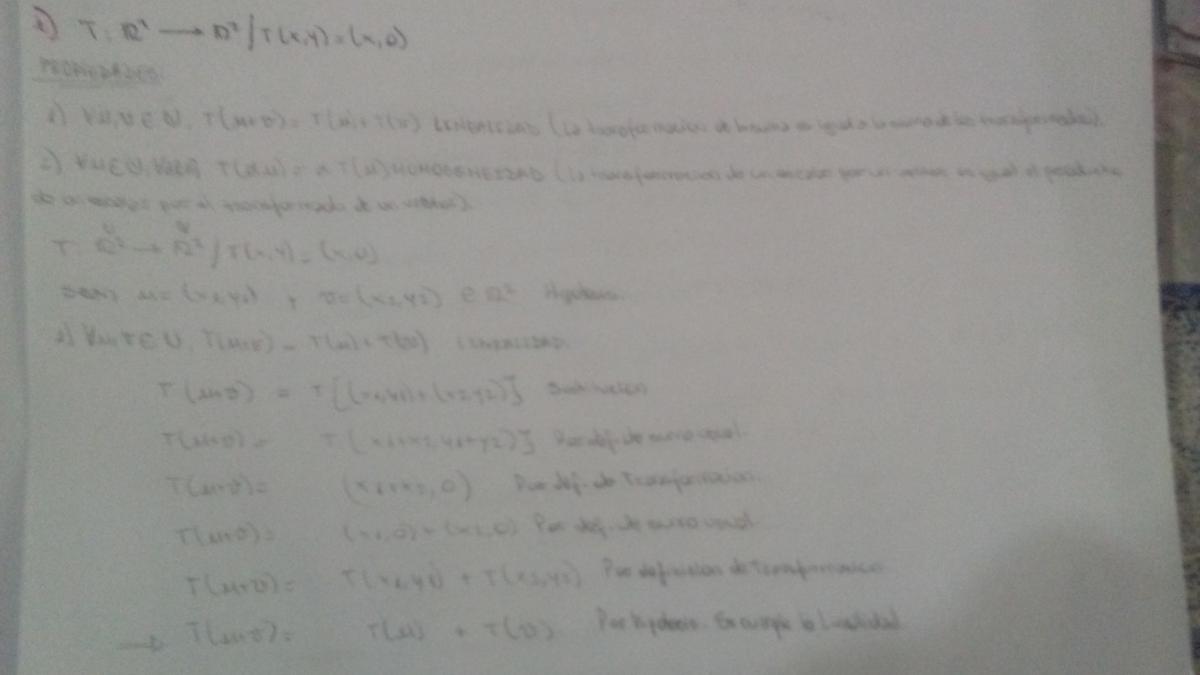 T: ℝ² → ℝ² / T(x,y) = (x,0)
PROPIEDADES:
1) ∀u,v ∈ U, T(u+v) = T(u) + T(v) LINEALIDAD (La transformación de la suma es igual a la suma de las transformadas).
2) ∀u ∈ U, T(αu) = α T(u) HOMOGENEIDAD (La transformación de un escalar por un vector es igual al producto
de un escalar por el transformado de un vector).
T: ℝ² → ℝ² / T(x,y) = (x,0)
SEAN u = (x1,y1) y v = (x2,y2) ∈ ℝ² Hipótesis.
1) ∀u,v ∈ U, T(u+v) = T(u) + T(v) LINEALIDAD.
T(u+v) = T[(x1,y1)+(x2,y2)]
T(u+v) = T(x1+x2, y1+y2)] Por def. de suma usual.
T(u+v) = (x1+x2, 0) Por def. de Transformación.
T(u+v) = (x1,0) + (x2,0) Por def. de suma usual
T(u+v) = T(x1,y1) + T(x2,y2) Por definición de Transformación
→ T(u+v) = T(u) + T(v) Por hipótesis. Se cumple la Linealidad